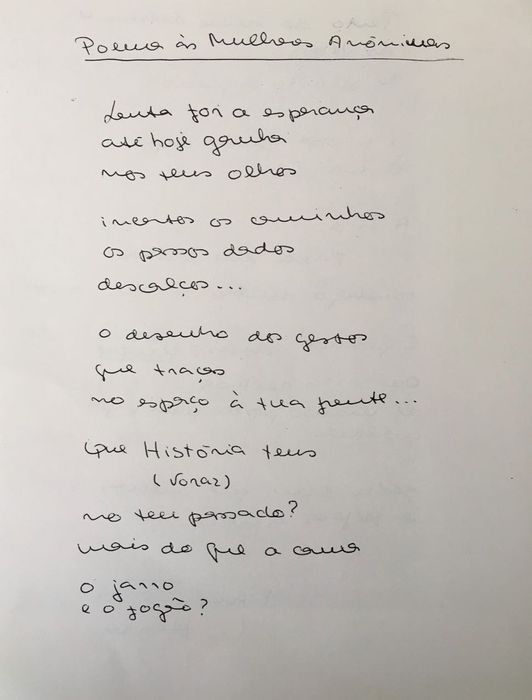 Poema às Mulheres Anónimas
Lenta foi a esperança
até hoje ganha
nos teus olhos
incertos os caminhos
os passos dados
descalços...
o desenho dos gestos
que traças
no espaço à tua frente...
Que História tens
(voraz)
no teu passado?
mais do que a cama
o jarro
e o fogão?